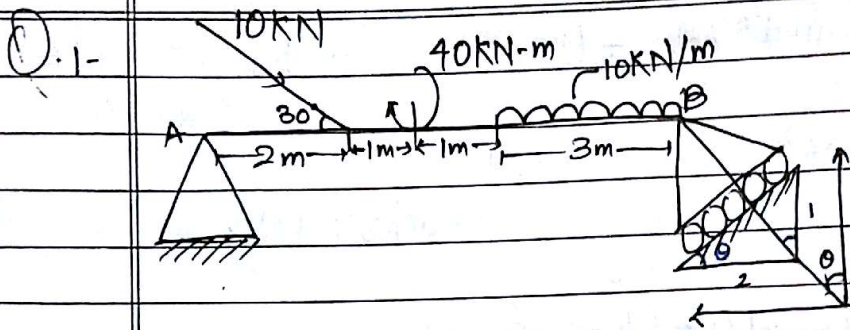 Q.1-
10KN
40KN-m
10KN/m
30°
A
B
2m
1m
1m
3m
θ
1
θ
2